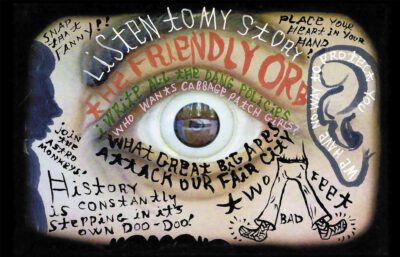 SNAP
THAT
FANNY!!
LISTEN to MY StORY
PLACE YOUR
HEART IN YOUR
HAND!
tHE FRIENDLY ORB
I WRITE ALL tHE DANG POLICIES
WHO WANTS CABBAGE PATCH GIRLS?
WE HAVE NO WAY to PROtECT YOU
WHAt GREAt BIG APES
AttACK OUR FAIR CItY
JOIN
tHE
ASTRO
MONKEYS!
HIStORY
IS CONStANtLY
StEPPING IN It'S
OWN DOO-DOO!
tWO
FEEt
BAD